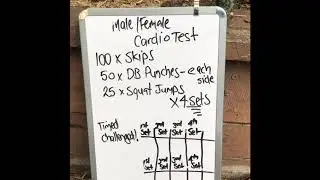 Male/Female
Cardio Test
100 x Skips
50 x DB Punches - each side
25 x Squat Jumps
x 4 sets
Timed challenged!
1st Set 2nd Set 3rd Set 4th Set
1st Set 2nd Set 3rd Set 4th Set